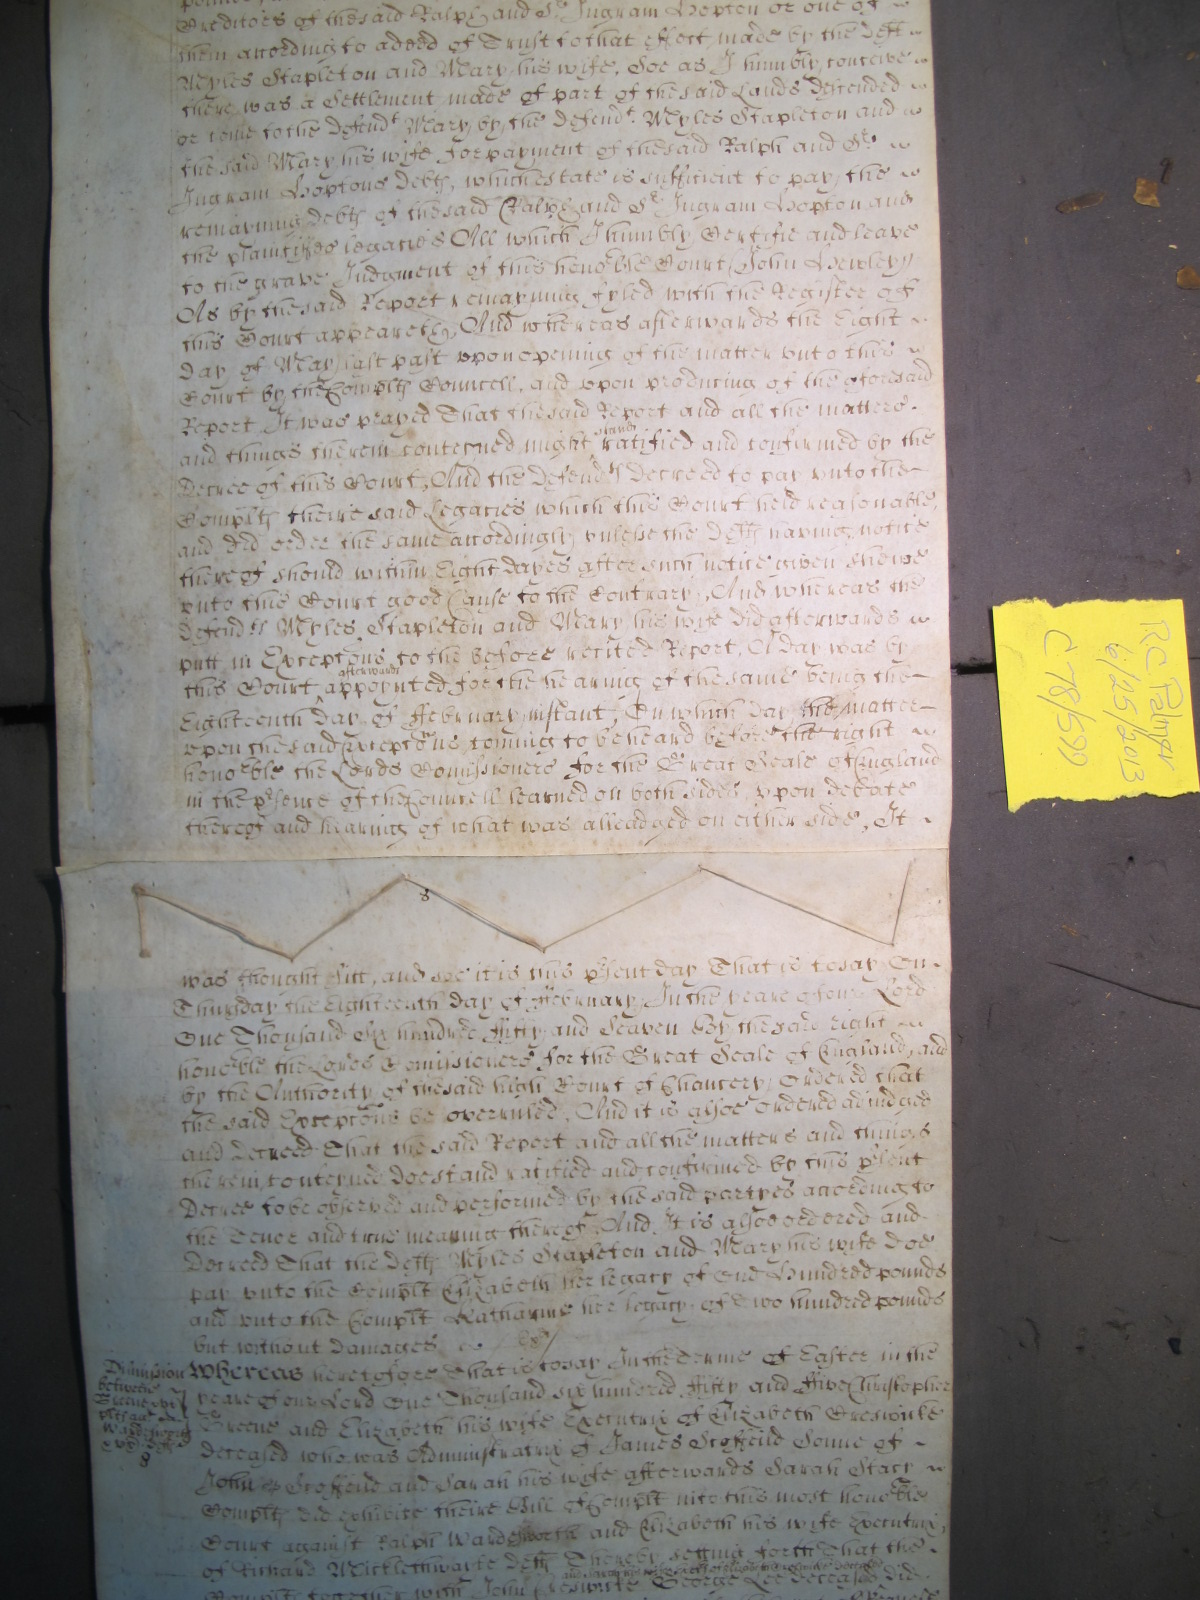 Creditors of the said Ralph and Sr. Ingram Hopton or one of
them according to a deed of Trust to that effect made by the Defts
Myles Stapleton and Mary his wife. Soe as I humbly conceive
there was a Settlement made of part of the said Lands descended
or come to the Defendt Mary by the Defendt. Myles Stapleton and
the said Mary his wife for payment of the said Ralph and Sr.
Ingram Hoptons debts, which estate is sufficient to pay the
remayning debts of the said Ralph and Sr. Ingram Hopton and
the plaintiffes legacies All which I humbly Certifie and leave
to the grave Judgment of this honoble Court John Hewley
As by the said Report remayning fyled with the Register of
this Court appeareth, And whereas afterwards the Eight
day of May last past upon opening of the matter unto this
Court by the Complts Councell, and upon producing of the aforesaid
Report It was prayed That the said Report and all the matters
and things therein conteyned might stand ratified and confirmed by the
Decree of this Court, And the Defendts decreed to pay unto the
Complts theire said Legacies which this Court held reasonable,
and did order the same accordingly unlesse the Defts having notice
thereof should within Eight dayes after such notice given shewe
unto this Court good Cause to the Contrary, And whereas the
Defendts Myles Stapleton and Mary his wife did afterwards
putt in Exceptons to the before recited Report, A day was by
this Court afterwards appoynted for the hearing of the same being the
Eighteenth day of ffebruary instant, On which day the matter
upon the said Exceptons coming to be heard before the right
honoble the Lords Comissioners for the Great Seale of England
in the psence of the Councell learned on both sides, upon debate
thereof and hearing of what was alleadged on either side, It
8
was thought fitt, and soe it is this psent day That is to say On
Thursday the Eighteenth day of ffebruary In the yeare of our Lord
One Thousand Six hundred fifty and Seaven By the said right
honoble the Lords Comissioners for the Great Seale of England, and
by the Authority of the said high Court of Chancery Ordered that
the said Exceptons be overruled, And it is alsoe Ordered adiudged
and Decreed That the said Report and all the matters and things
therein conteyned doe stand ratified and confirmed by this psent
Decree to be observed and performed by the said partyes according to
the Tenor and true meaning thereof, And It is alsoe ordered and
Decreed That the Defts Myles Stapleton and Mary his wife doe
pay unto the Complt Elizabeth her legacy of One Hundred pounds
and unto the Complt Katharine her legacy of Two hundred pounds
but without damages
Whereas heretofore That is to say In the Terme of Easter in the
yeare of our Lord One Thousand six hundred fifty and ffive Christopher
Greene and Elizabeth his wife Executrix of Elizabeth Creswicke
deceased who was Administratrix of James Scoffeild Sonne of
John Scoffeild and Sarah his wife afterwards Sarah Stacy
Complts did exhibite theire Bill of Complt into this most honoble
Court against Ralph Wardsworth and Elizabeth his wife Executrix
of Richard Micklethwayte Defts Thereby setting forth That the
Complts together with John Creswicke George Lee deceased did
between
Greene
8
RC Palmer
6/25/2013
C78/599